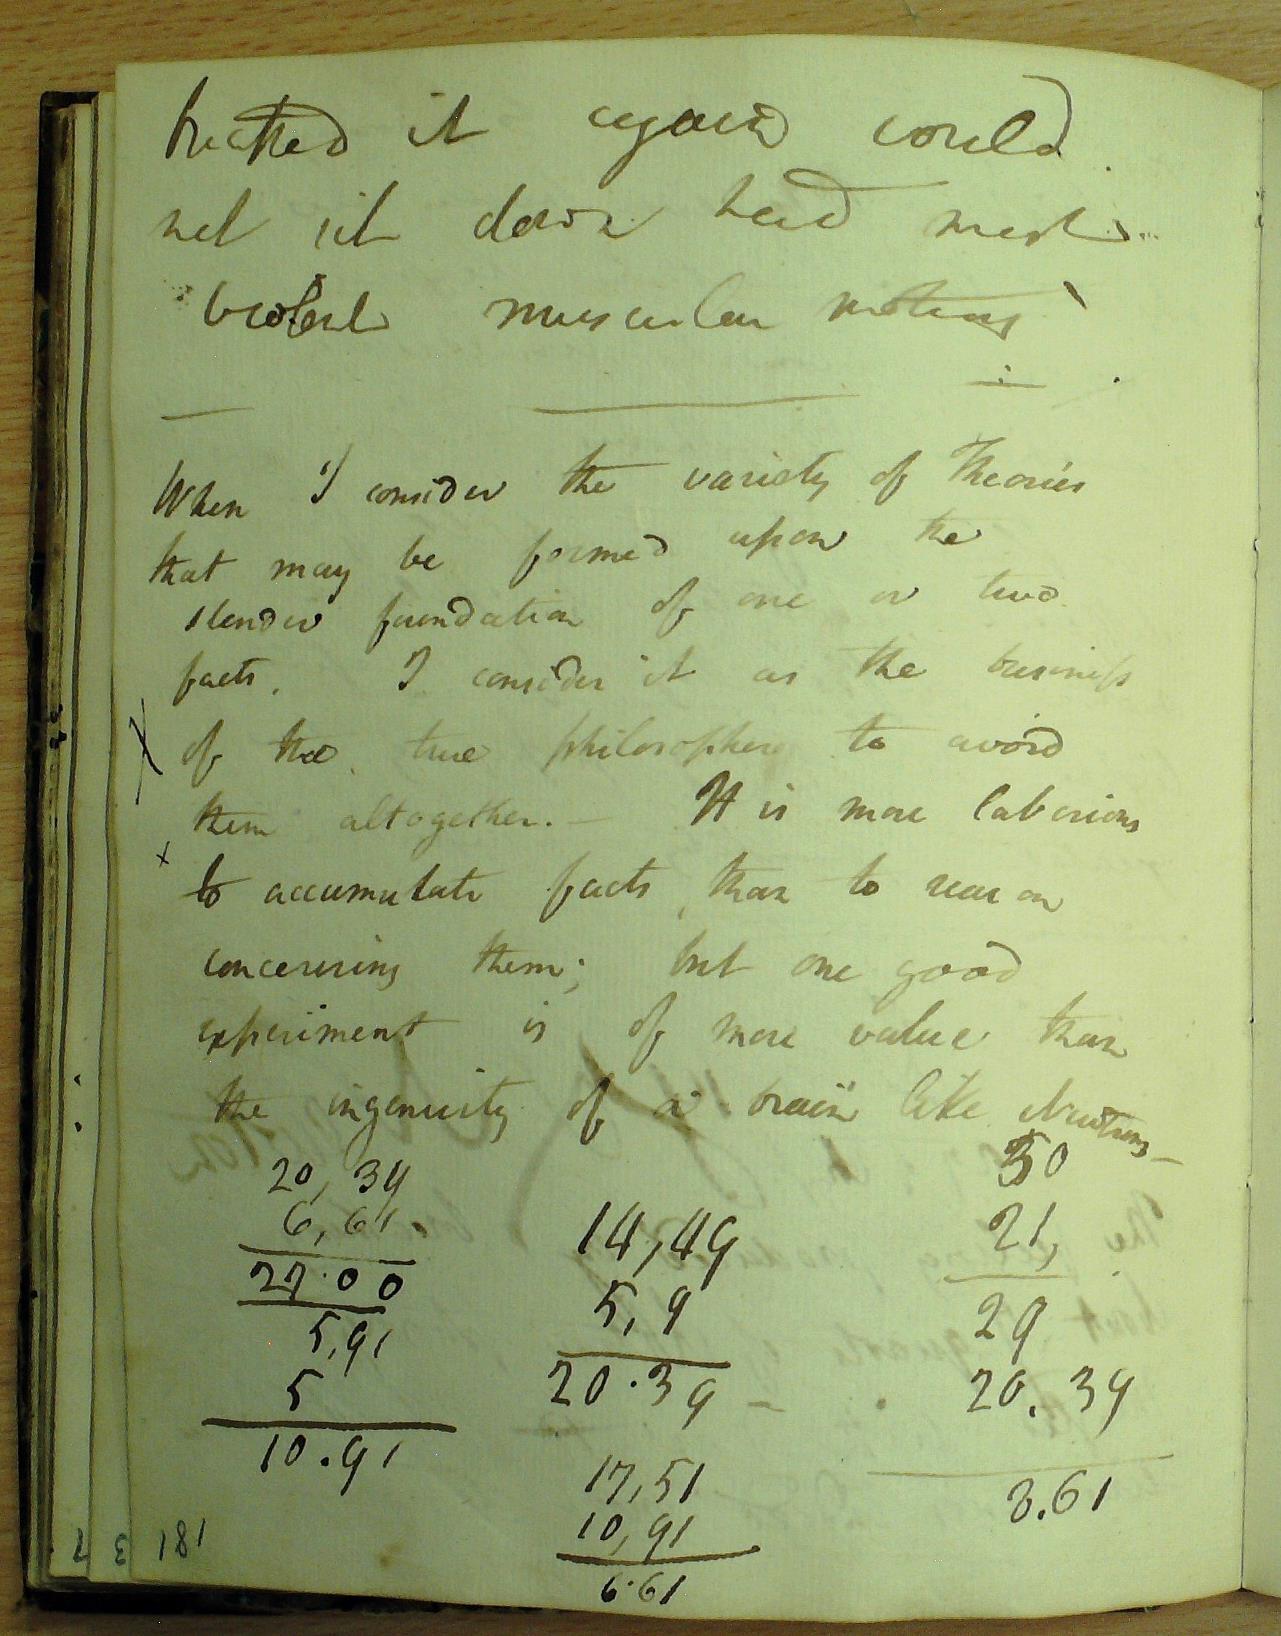 it again could
not sit down had most
violent muscular motions
When I consider the variety of Theories
that may be formed upon the
slender foundation of one or two
facts. I consider it as the business
of the true philosopher to avoid
them altogether. — It is more laborious
to accumulate facts, than to reason
concerning them; but one good
experiment is of more value than
the ingenuity of a brain like Newtons —
20,39
6,61
27.00
5,91
5
10.91
14,49
5,9
20.39 —
17,51
10,91
6.61
50
21,
29
20.39
8.61
181